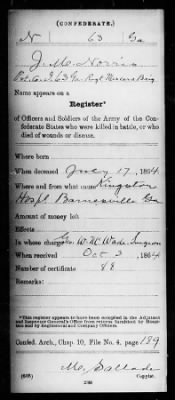 (CONFEDERATE.)
N 63 Ga
J. M. Norris
Pvt. Co. I, 63 Ga. Regt Mercers Brig
Name appears on a
Register*
of Officers and Soldiers of the Army of the Con-
federate States who were killed in battle, or who
died of wounds or disease.
Where born
When deceased July 17, 1864
Where and from what cause Kingston
Hospl Barnesville Ga
Amount of money left
Effects
In whose charge Geo. W. McWade Surgeon
When received Oct 3, 1864
Number of certificate 48
Remarks:
*This register appears to have been compiled in the Adjutant
and Inspector General's Office from returns furnished by Hospi-
tals and by Regimental and Company Officers.
Confed. Arch., Chap. 10, File No. 4, page 189
(635)
Copyist.